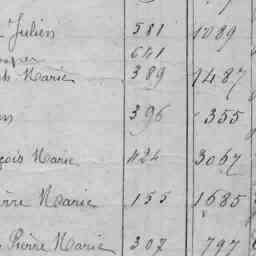 Julien 581 1089
641
Marie 389 1487
396 355
Marie 424 3067
Marie 155 1685
Pierre Marie 307 797